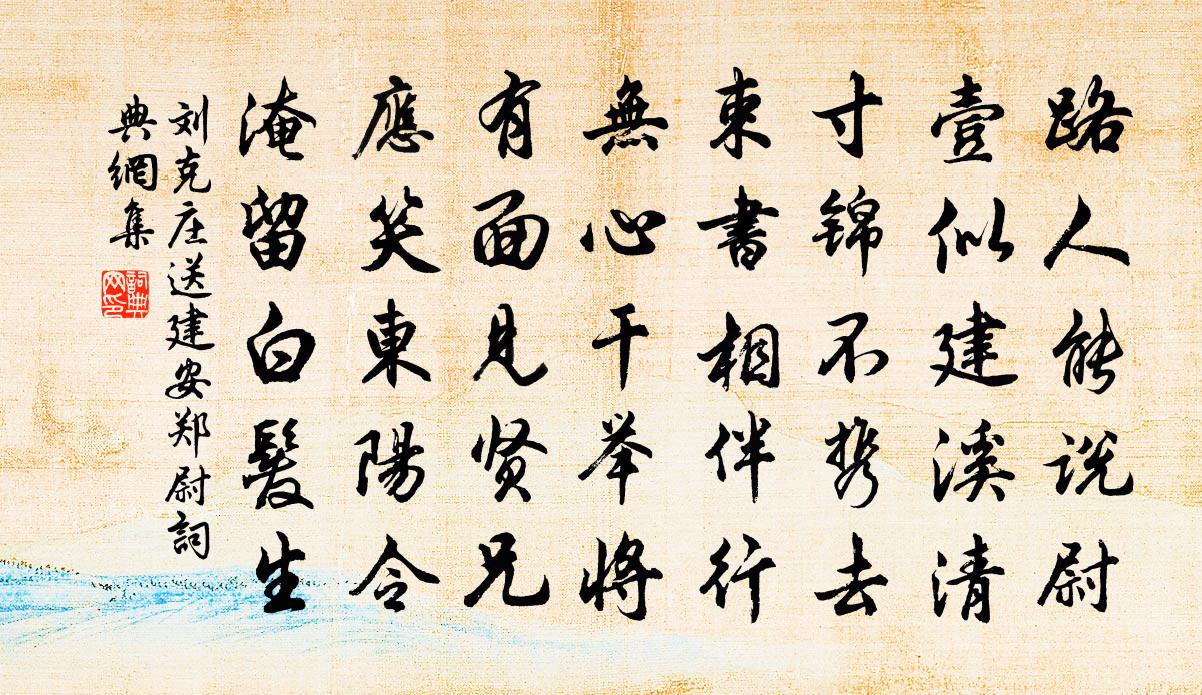 路人能说尉
壹似建溪清
寸锦不携去
束書相伴行
無心干举將
有面見贤兄
應笑東陽令
淹留白髮生
刘克庄送建安郑尉詞
典網集
詞典
网印